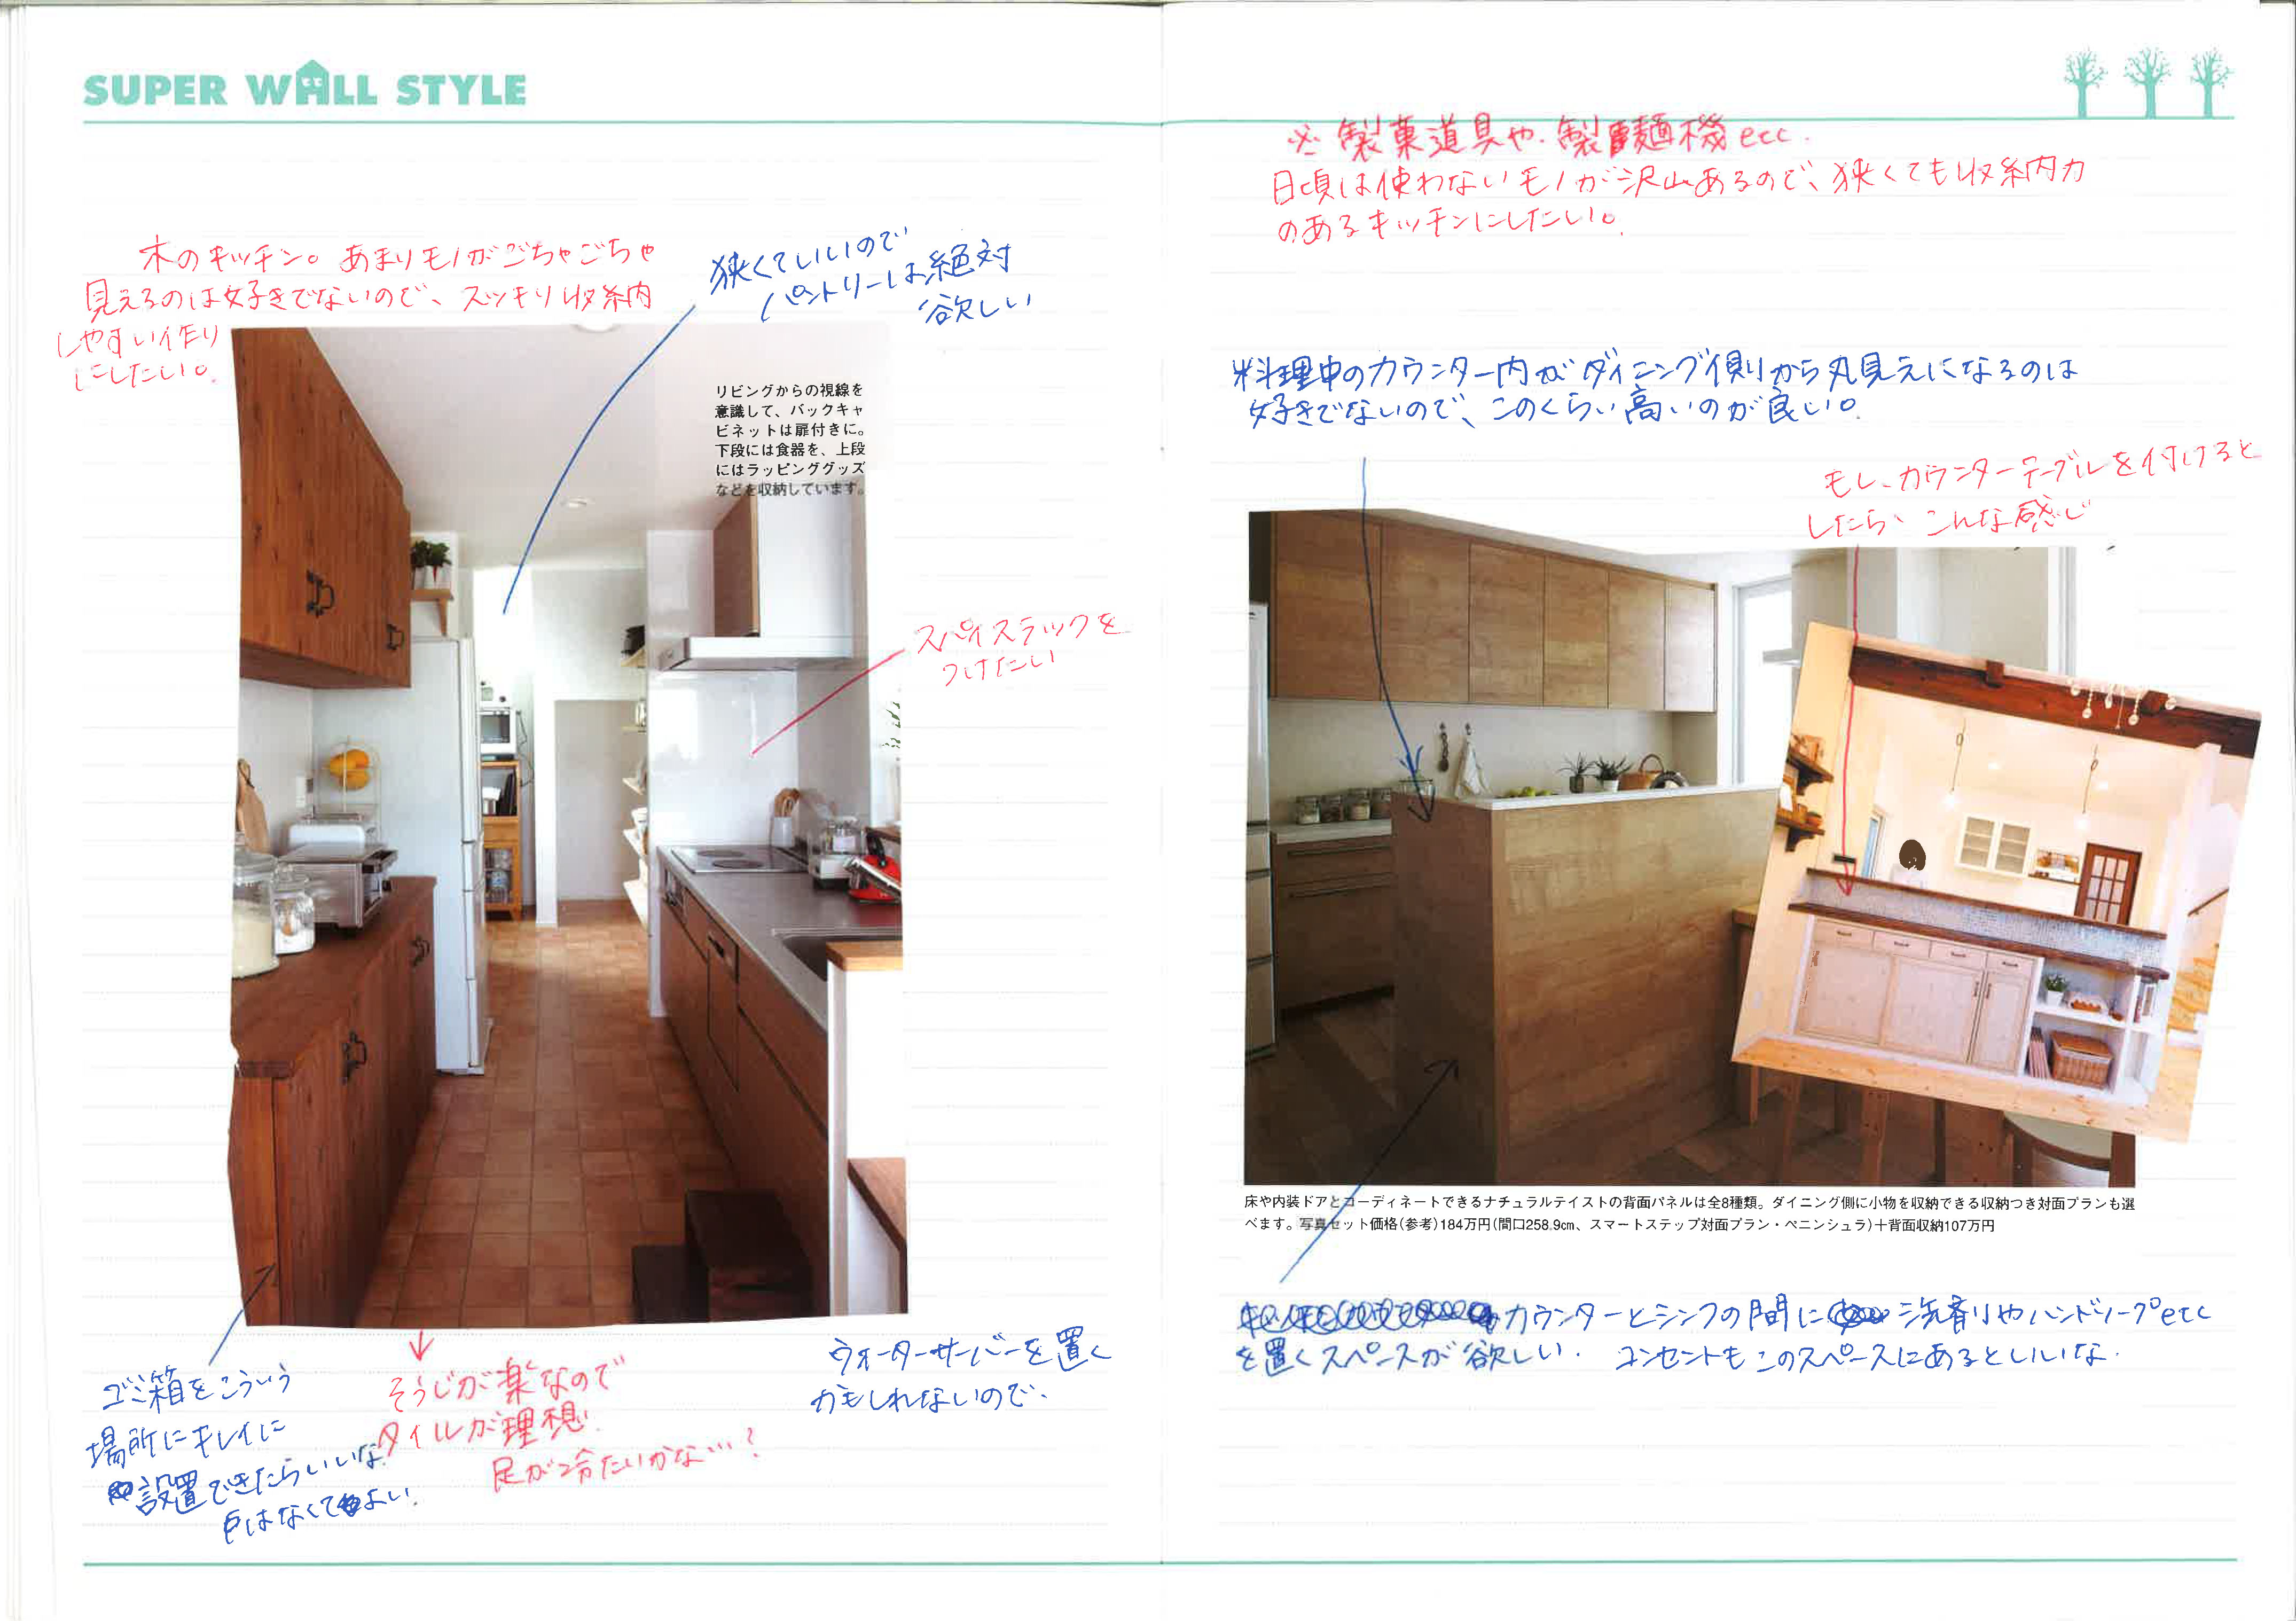 SUPER WALL STYLE
木のキッチン。あまりモノがごちゃごちゃ
見えるのは好きでないので、スッキリ収納
しやすい作り
にしたい。
狭くていいので
パントリーは絶対
欲しい
リビングからの視線を
意識して、バックキャ
ビネットは扉付きに。
下段には食器を、上段
にはラッピンググッズ
などを収納しています。
スパイスラックを
つけたい
ゴミ箱をこういう
場所にキレイに
設置できたらいいな
戸はなくてよい.
そうじが楽なので
タイルが理想.
足が冷たいかな…?
ウォーターサーバーを置く
かもしれないので、
※製菓道具や.製麺機etc.
日頃は使わないモノが沢山あるので、狭くても収納力
のあるキッチンにしたい。
料理中のカウンター内がダイニング側から丸見えになるのは
好きでないので、このくらい高いのが良い。
もし、カウンターテーブルを付けると
したら、こんな感じ
床や内装ドアとコーディネートできるナチュラルテイストの背面パネルは全8種類。ダイニング側に小物を収納できる収納つき対面プランも選
べます。写真セット価格(参考)184万円(間口258.9cm、スマートステップ対面プラン・ペニンシュラ)＋背面収納107万円
カウンターとシンクの間に洗剤やハンドソープetc
を置くスペースが欲しい. コンセントもこのスペースにあるといいな.